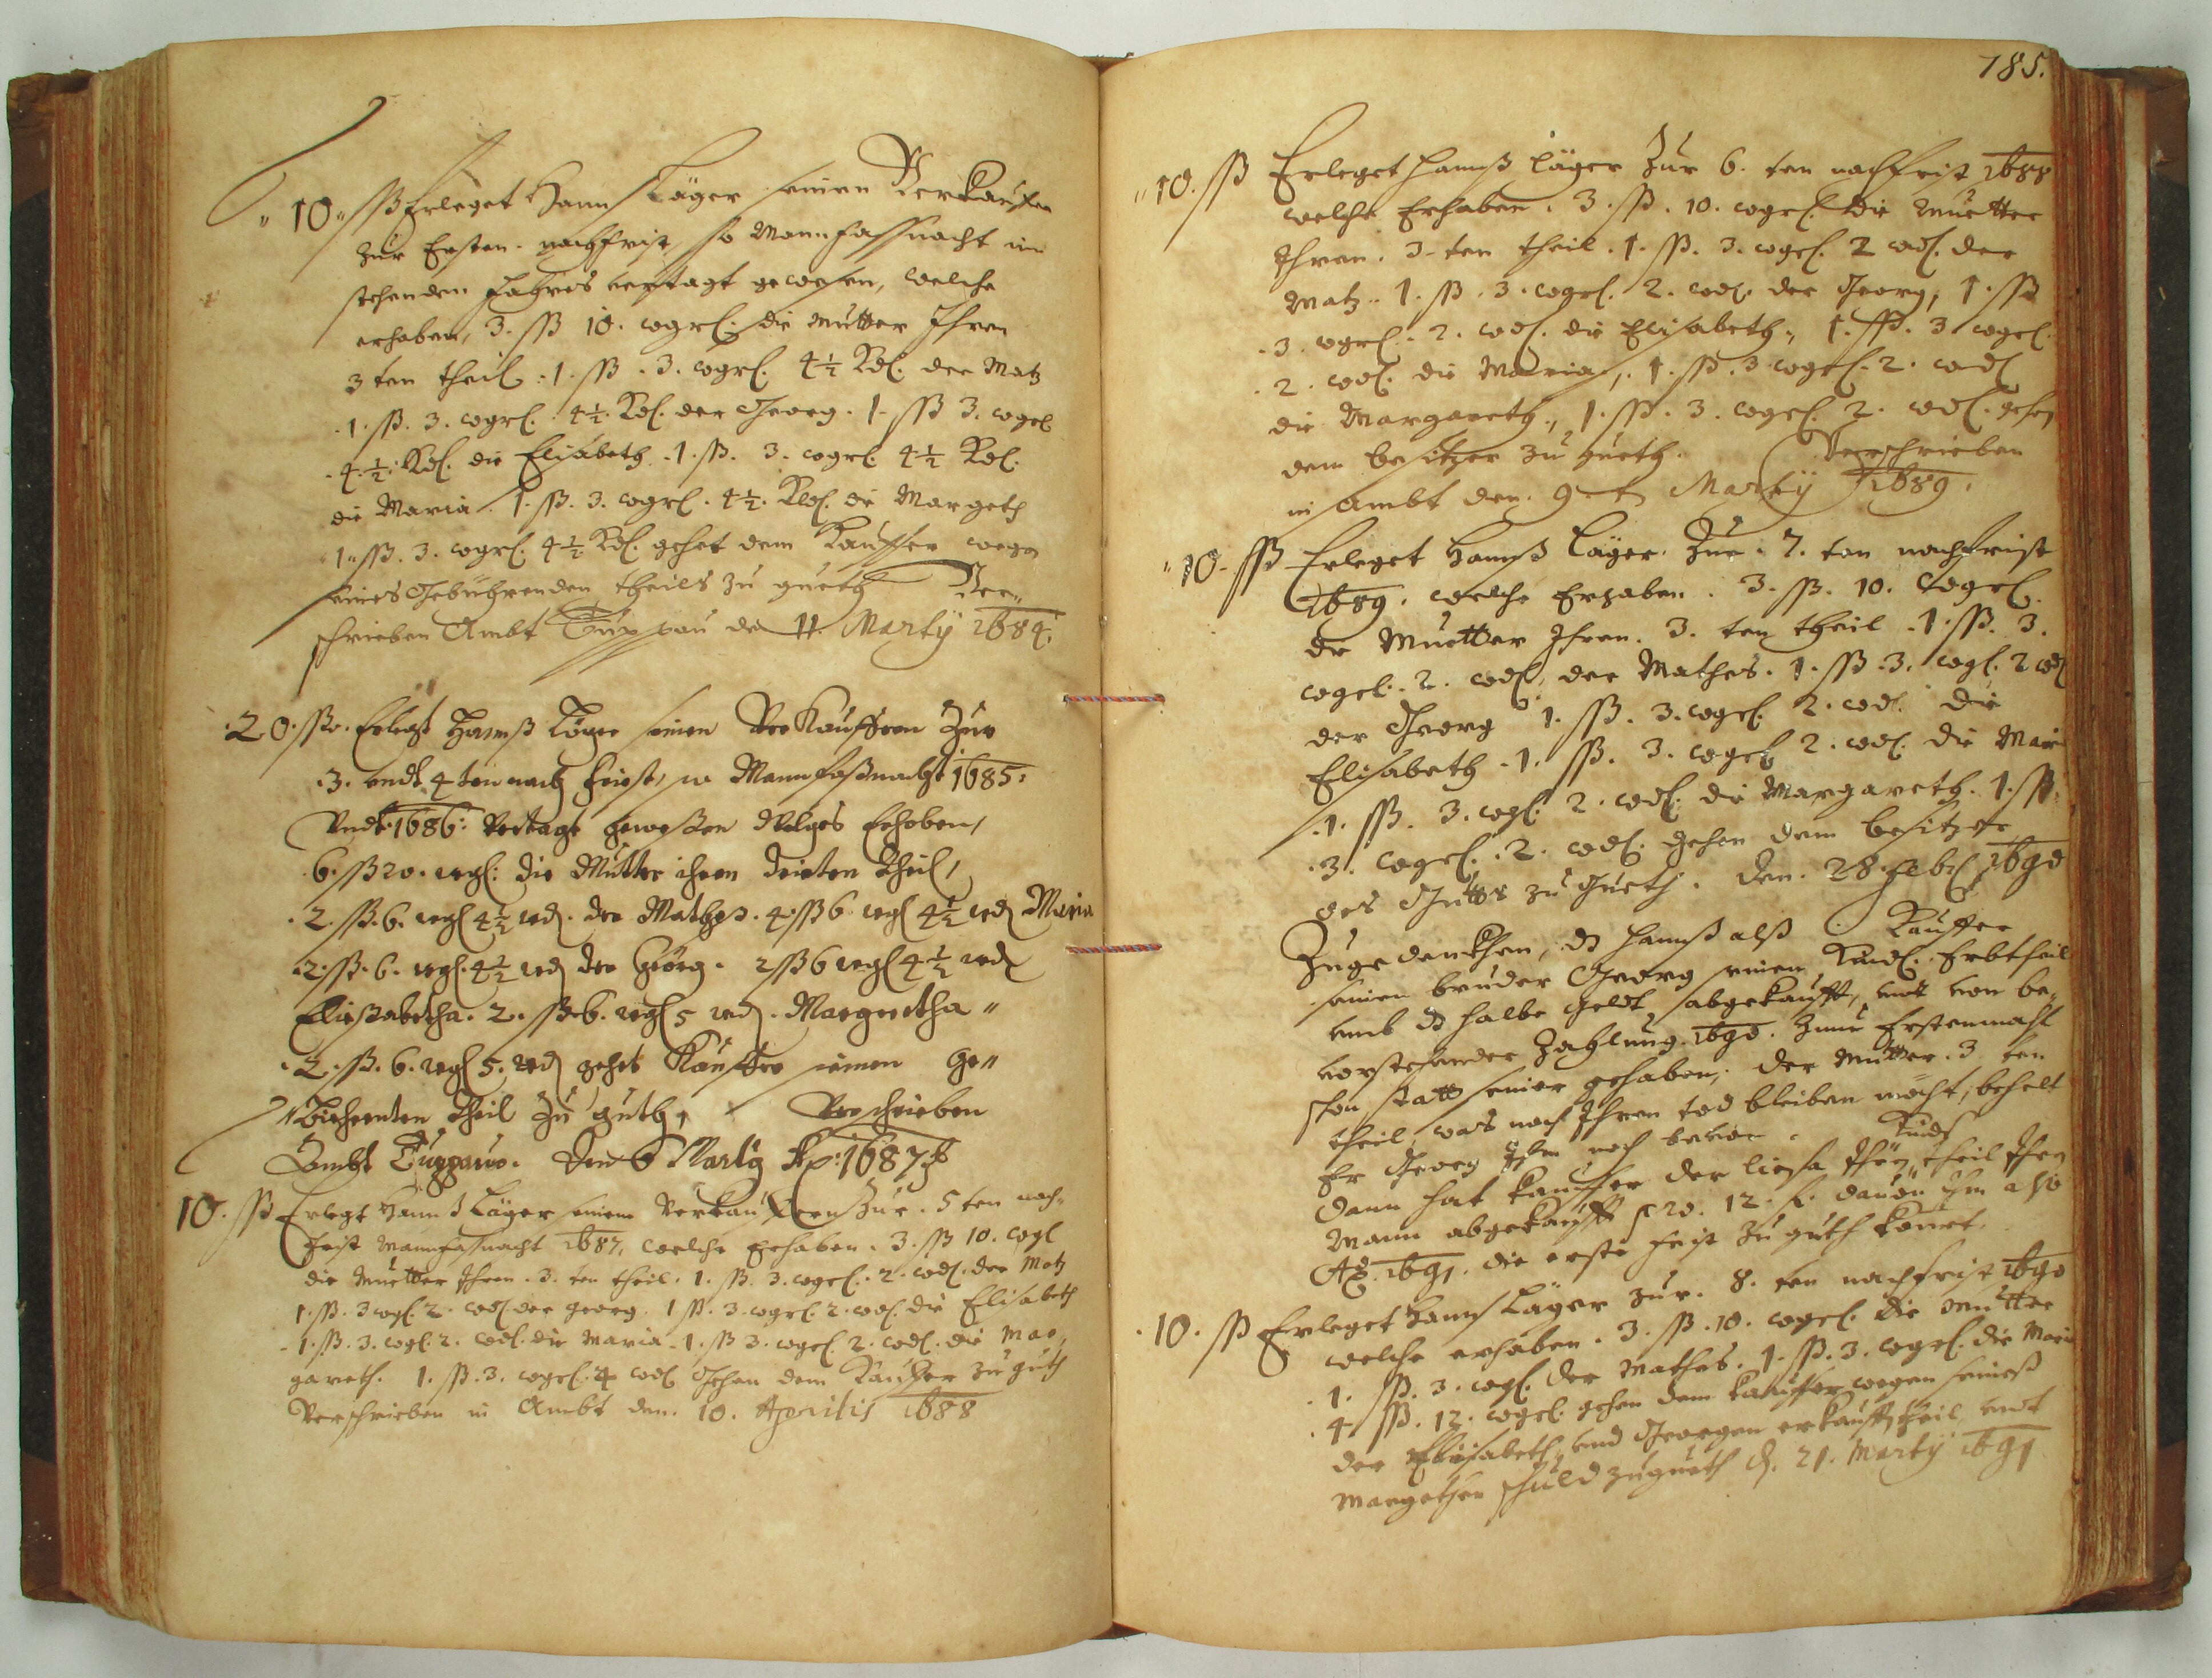 10 ßß Erleget Hannß Läger seinen Verkauffer
zur Ersten nachfrist, so Mannfassnacht im
stehenden Jahres vertagt gewesen, welche
erhaben, 3. ßß 10. wgrl. die Mutter Ihren
3 ten theil. 1. ßß. 3. wgrl. 4½ Kdl. der Matz
1. ßß. 3. wgrl. 4½. Kdl. der Georg. 1. ßß 3. wgrl
4.½. Kdl. die Elisabeth. 1. ßß. 3. wgrl. 4½ Kdl.
die Maria. 1. ßß. 3. wgrl. 4½. Kdl. die Margeth
1. ßß. 3. wgrl. 4½ Kdl. gehet dem Kauffer wegen
seines Gebührenden theils zu gueth Ver„
schrieben Ambt Tuppau den 11. Marty 1684.
20. ßß. Erlegt Hannß Läger seinen Verkauffern Zur
3. undt 4 ten nach frist, so Mannfaßnacht 1685:
Undt 1686: Vertagt geweßen Welches Erhoben,
6. ßß 20. wgl: die Mutter ihren dritten theil,
2. ßß. 6. wgl 4½ wd. der Mathes. 4. ßß 6. wgl 4½ wd Maria
2. ßß. 6. wgl. 4½ wd der Geörg. 2 ßß 6 wgl 4½ wd
Eließabetha. 2. ßß 6. wgl 5 wd. Margretha„
2. ßß. 6. wgl 5. wd gehet Kauffer seinen Ge„
„Biehrenten Theil zu guth, Verschrieben
Ambt Tuppau. Den 6 Marty Ao: 1687
10. ßß Erlegt Hannß Läger seinem Verkauffern Zur. 5 ten nach„
frist Mannfassnacht 1687, welche Erhaben. 3. ßß 10. wgl
die Muetter Ihren. 3. ten theil. 1. ßß. 3. wgrl. 2. wdl. der Matz
1. ßß. 3 wgl. 2. wdl der Georg. 1 ßß. 3. wgrl. 2. wdl. die Elisabeth
1. ßß. 3. wgl. 2. wdl. die Maria. 1. ßß 3. wgrl. 2. wdl. die Mar„
gareth. 1. ßß. 3. wgrl. 4 wdl Gehen dem Kauffer zu guth
Verschrieben in Ambt den. 10. Aprilis 1688
185.
10. ßß Erleget Hannß Läger Zur 6. ten nachfrist 1688
welche Erhaben. 3. ßß. 10. wgrl. die Muetter
Ihren. 3. ten theil. 1. ßß. 3. wgrl. 2 wdl. der
Matz. 1. ßß. 3. wgrl. 2. wdl. der Georg, 1. ßß
3. wgrl. 2. wdl. die Elisabeth, 1. ßß. 3 wgrl.
2. wdl. die Maria, 1. ßß. 3 wgrl. 2. wdl
die Margareth, 1. ßß. 3. wgrl. 2. wdl. gehen
dem besitzer zu gueth. Verschrieben
in Ambt den. 9. t Marty 1689.
10. ßß Erleget Hannß Läger. Zur. 7. ten nachfrist
1689. welche Erhaben. 3. ßß. 10. wgrl.
die Muetter Ihren. 3. ten theil. 1. ßß. 3.
wgrl. 2. wdl, der Mathes. 1. ßß. 3. wgl. 2 wd
der Georg 1. ßß. 3. wgrl. 2. wdl. die
Elisabeth. 1. ßß. 3. wgrl 2. wdl. die Maria
1. ßß. 3. wgl. 2. wdl. die Margareth. 1. ßß.
3. wgrl. 2. wdl. gehen dem besitzer
des Gutts zu Gueth. den. 28. Febr 1690
Zugedenckhen, ds Hannß alß Kauffer
seinen bruder Georg seinen Kauff. Erbtheil
umb ds halbe geldt abgekaufft, undt von be„
vorstehender Zahlung. 1690. Zum Erstenmahl
schon statt seiner gehaben, der Mutter. 3 ten
theil, was nach Ihren tod bleiben möcht, behelt
Er Georg Ihm noch bevor.
dann hat kauffer der Liesa theil Ihren
Mann abgekaufft p 20. 12. f. davon ihm also
Ao. 1691. die erste frist zu guth kombt.
10. ßß Erleget Hannß Läger zur. 8. ten nachfrist 1690
welche erhaben. 3. ßß. 10. wgrl. die Mutter
1. ßß. 3. wgl. der Mathes. 1. ßß. 3. wgrl. die Maria
4. ßß. 12. wgrl. gehen dem kauffer wegen seineß
der Elisabeth, und Georgen erkaufften theil, undt
Margethen schuld zugueth d. 21. Marty 1691